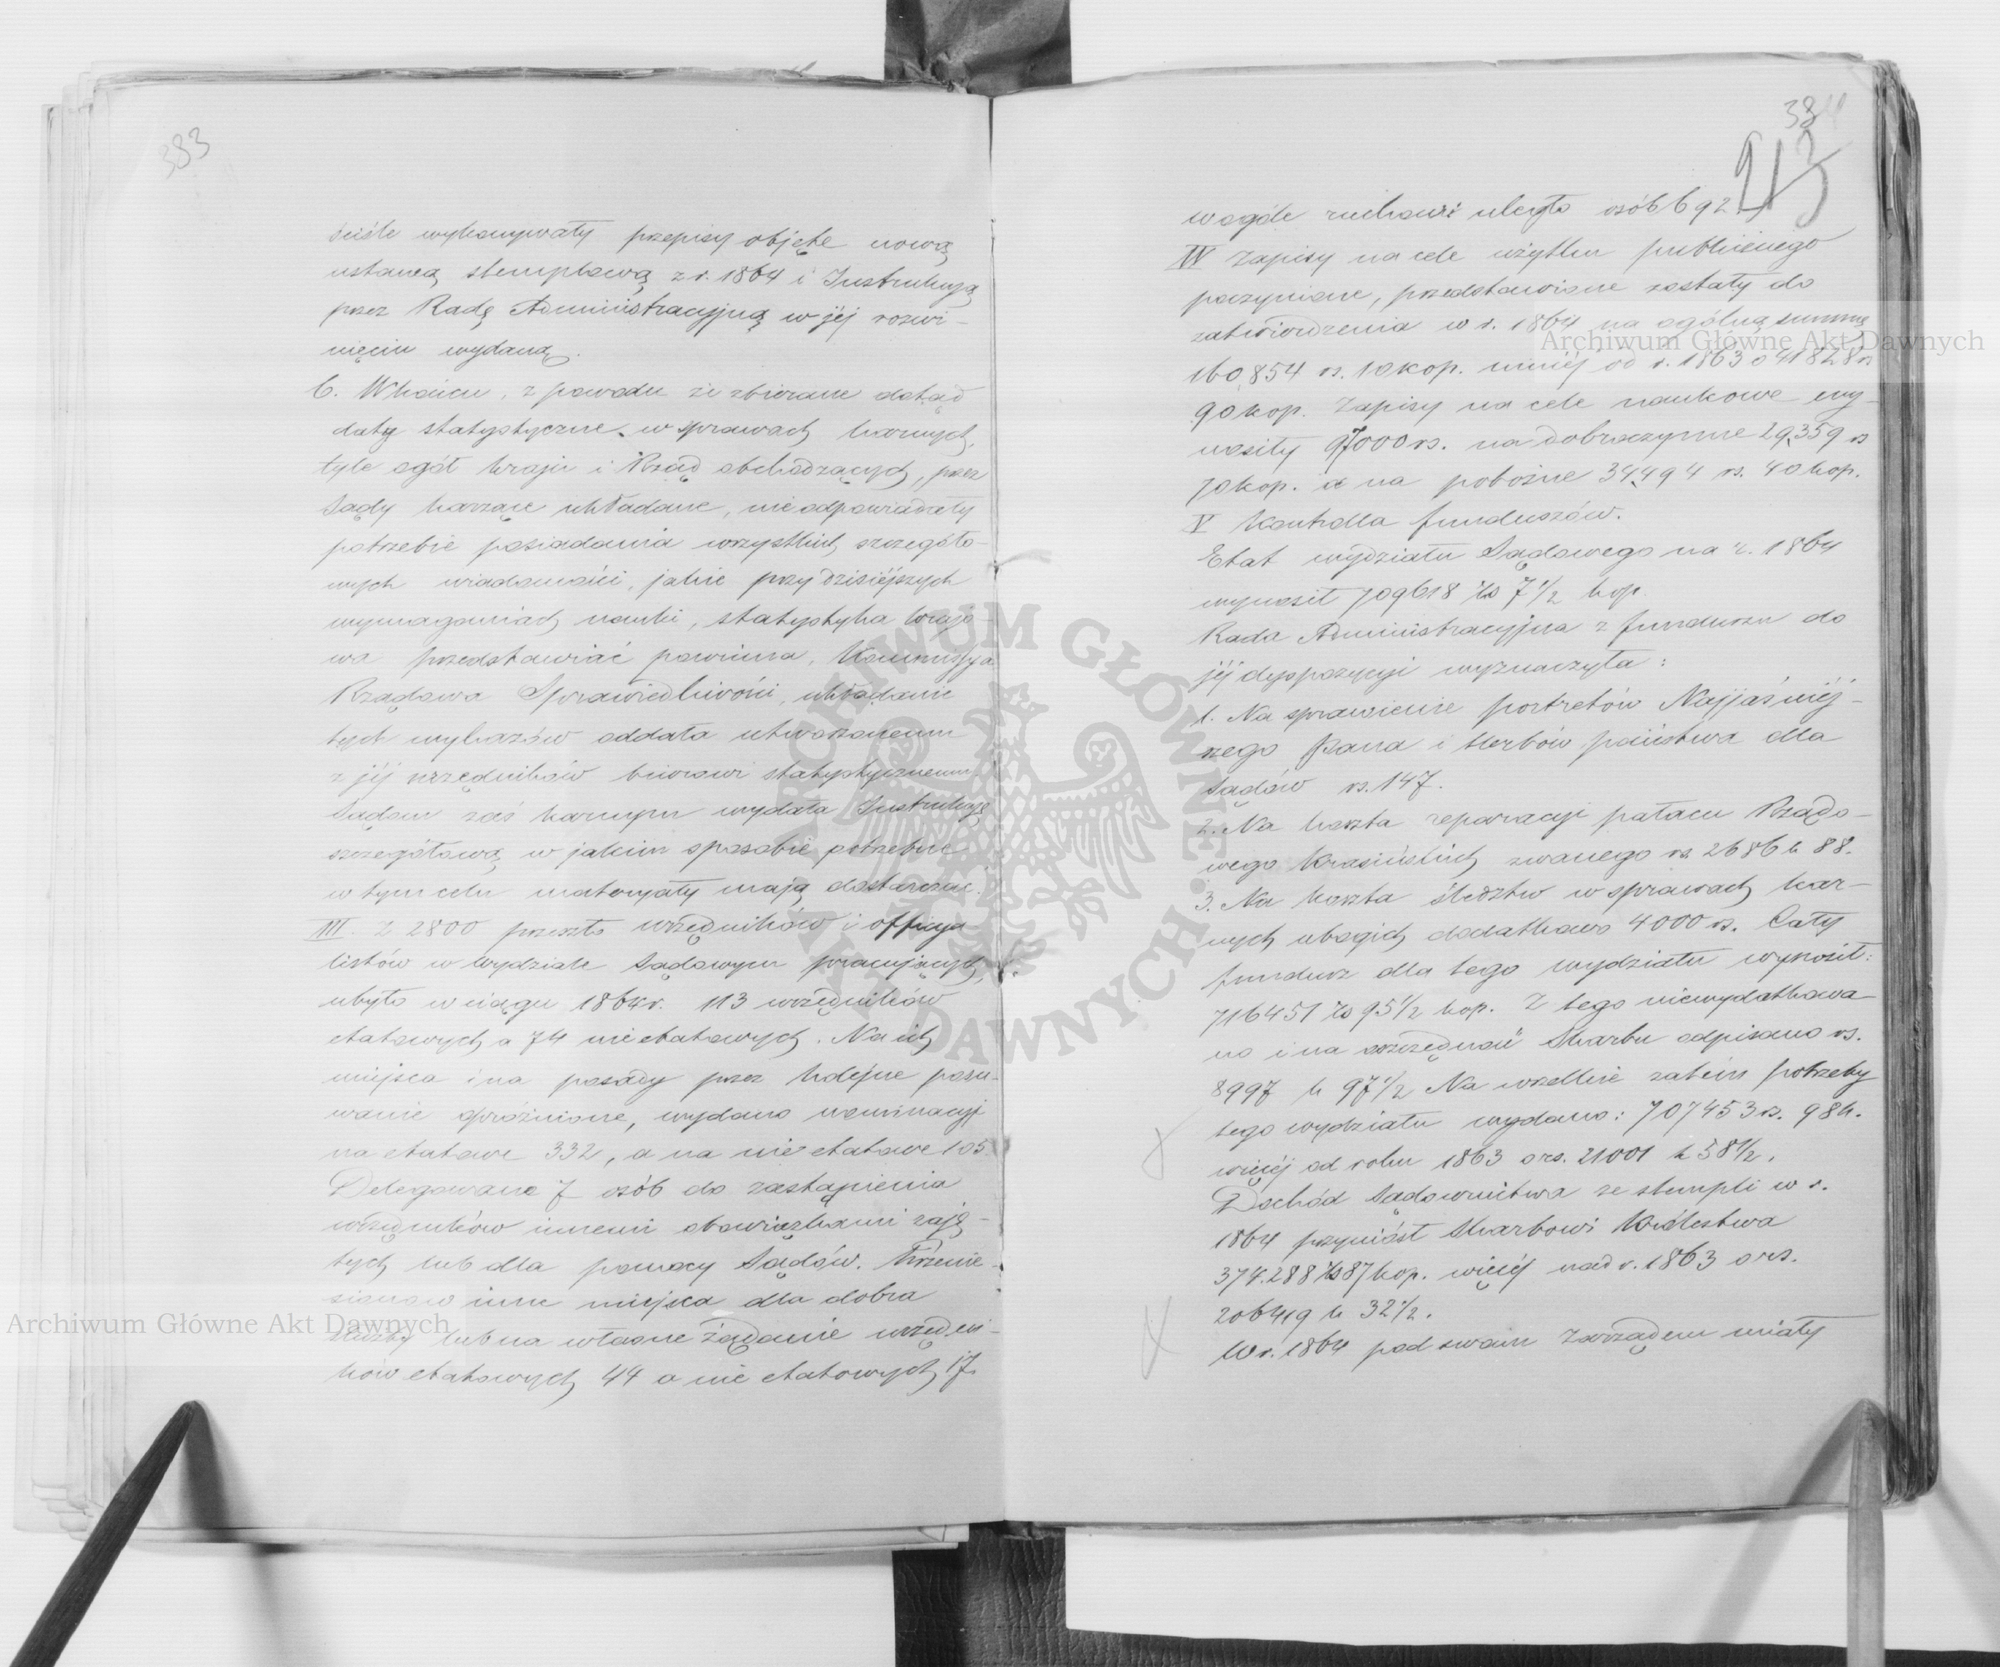 383
ściśle wykonywały przepisy objęte nową
ustawą stemplową z r. 1864 i Instrukcją
przez Radę Administracyjną w jéj rozwi-
nięciu wydaną.
6. W końcu, z powodu że zbierane dotąd
daty statystyczne w sprawach karnych,
tyle ogół kraju i Rząd obchodzących, przez
Sądy karzące układane, nie odpowiadały
potrzebie posiadania wszystkich szczegóło-
wych wiadomości, jakie przy dzisiéjszych
wymaganiach nauki, statystyka krajo-
wa przedstawiać powinna, Kommissya
Rządowa Sprawiedliwości, układanie
tych wykazów oddała utworzonemu
z jéj urzędników biurowi statystycznemu.
Sądom zaś karnym wydała Instrukcję
szczegółową w jakim sposobie potrzebne
w tym celu materyały mają dostarczać.
III. Z 2800 przeszło urzędników i officya-
listów w Wydziale Sądowym pracujących,
ubyło w ciągu 1864 r. 113 urzędników
etatowych a 74 nieetatowych. Na ich
miejsca i na posady przez kolejne posu-
wanie opróżnione, wydano nominacyj
na etatowe 332, a na nie etatowe 105.
Delegowano 7 osób do zastąpienia
urzędników innemi obowiązkami zaję-
tych lub dla pomocy Sądów. Przenie-
siono w inne miejsca dla dobra
służby lub na własne żądanie urzędni-
ków etatowych 44 a nie etatowych 17.
384
213
w ogóle ruchowi uległo osób 692.
IV Zapisy na cele użytku publicznego
poczynione, przedstawione zostały do
zatwierdzenia w r. 1864 na ogólną summę
160,854 rs. 10 kop. mniéj od r. 1863 o 41828 rs
90 kop. Zapisy na cele naukowe wy-
nosiły 97000 rs. na dobroczynne 29,359 rs
70 kop. a na pobożne 34,494 rs. 40 kop.
V Kontrolla funduszów.
Etat wydziału Sądowego na r. 1864
wynosił 709618 rs 7 1/2 kop.
Rada Administracyjna z funduszu do
jéj dyspozycyi wyznaczyła:
1. Na sprawienie portretów Najjaśniéj-
szego Pana i Herbów państwa dla
Sądów rs. 147.
2. Na koszta reparacyi pałacu Rządo-
wego Krasińskich zwanego rs 2686 k 88.
3. Na koszta śledztw w sprawach kar-
nych ubogich dodatkowo 4000 rs. Cały
fundusz dla tego wydziału wynosił:
716451 rs 95 1/2 kop. Z tego niewydatkowa-
no i na oszczędność Skarbu odpisano rs.
8997 k 97 1/2 Na wszelkie zatém potrzeby
tego wydziału wydano: 707453 rs. 98 k.
więcéj od roku 1863 o rs. 21001 k 58 1/2.
Dochód Sądownictwa ze stempli w r.
1864 przyniósł Skarbowi Królestwa
374.288 rs 87 kop. więcéj nad r. 1863 o rs.
206419 k 32 1/2.
W r. 1864 pod swoim Zarządem miały
Archiwum Główne Akt Dawnych
Archiwum Główne Akt Dawnych
ARCHIWUM GŁÓWNE AKT DAWNYCH